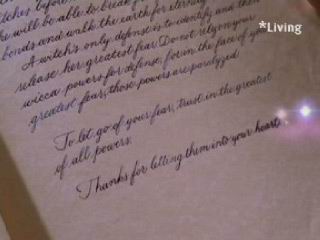 witches before
he will be able to break
bonds and walk the earth for eternity.
A witch's only defense is to identify and then
release her greatest fear. Do not rely on your
wicca powers for defense, for in the face of your
greatest fear, those powers are paralyzed.
To let go of your fear, trust in the greatest
of all powers.
Thanks for letting them into your heart.
*Living